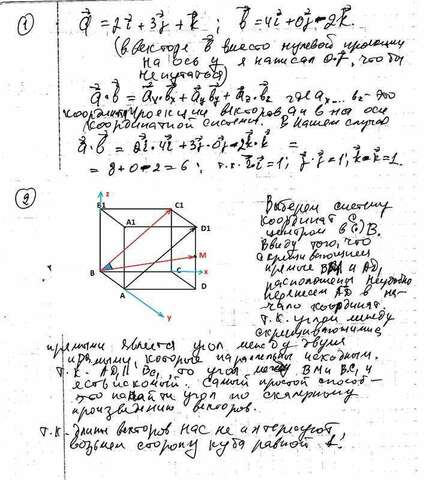 ① a = 2i + 3j + k ; b = 4i + 0j - 2k.
(В векторе b вместо нулевой проекции
на ось y я написал 0·j, чтобы
не путаться)
a·b = ax·bx + ay·by + az·bz где ax... bz - это
координаты проекции векторов a и b на оси
координатной системы. В нашем случае
a·b = 2i·4i + 3j·0j - 2k·k =
= 8 + 0 - 2 = 6; т.к. i·i = 1; j·j = 1; k·k = 1
②
z
B1 C1
A1 D1
M
B C x
A D
y
Выберем систему
координат с
центром в (·) B.
Ввиду того, что
скрещивающиеся
прямые BM и AD1
расположены неудобно
перенесем AD1 в на-
чало координат.
Т.к. углом между
скрещивающимися
прямыми является угол между двумя
прямыми, которые параллельны исходным.
Т.к. AD1 || BC1, то угол между BM и BC1 и
есть искомый. Самый простой способ -
это найти угол по скалярному
произведению векторов.
Т.к. длины векторов нас не интересуют,
возьмем сторону куба равной 1.